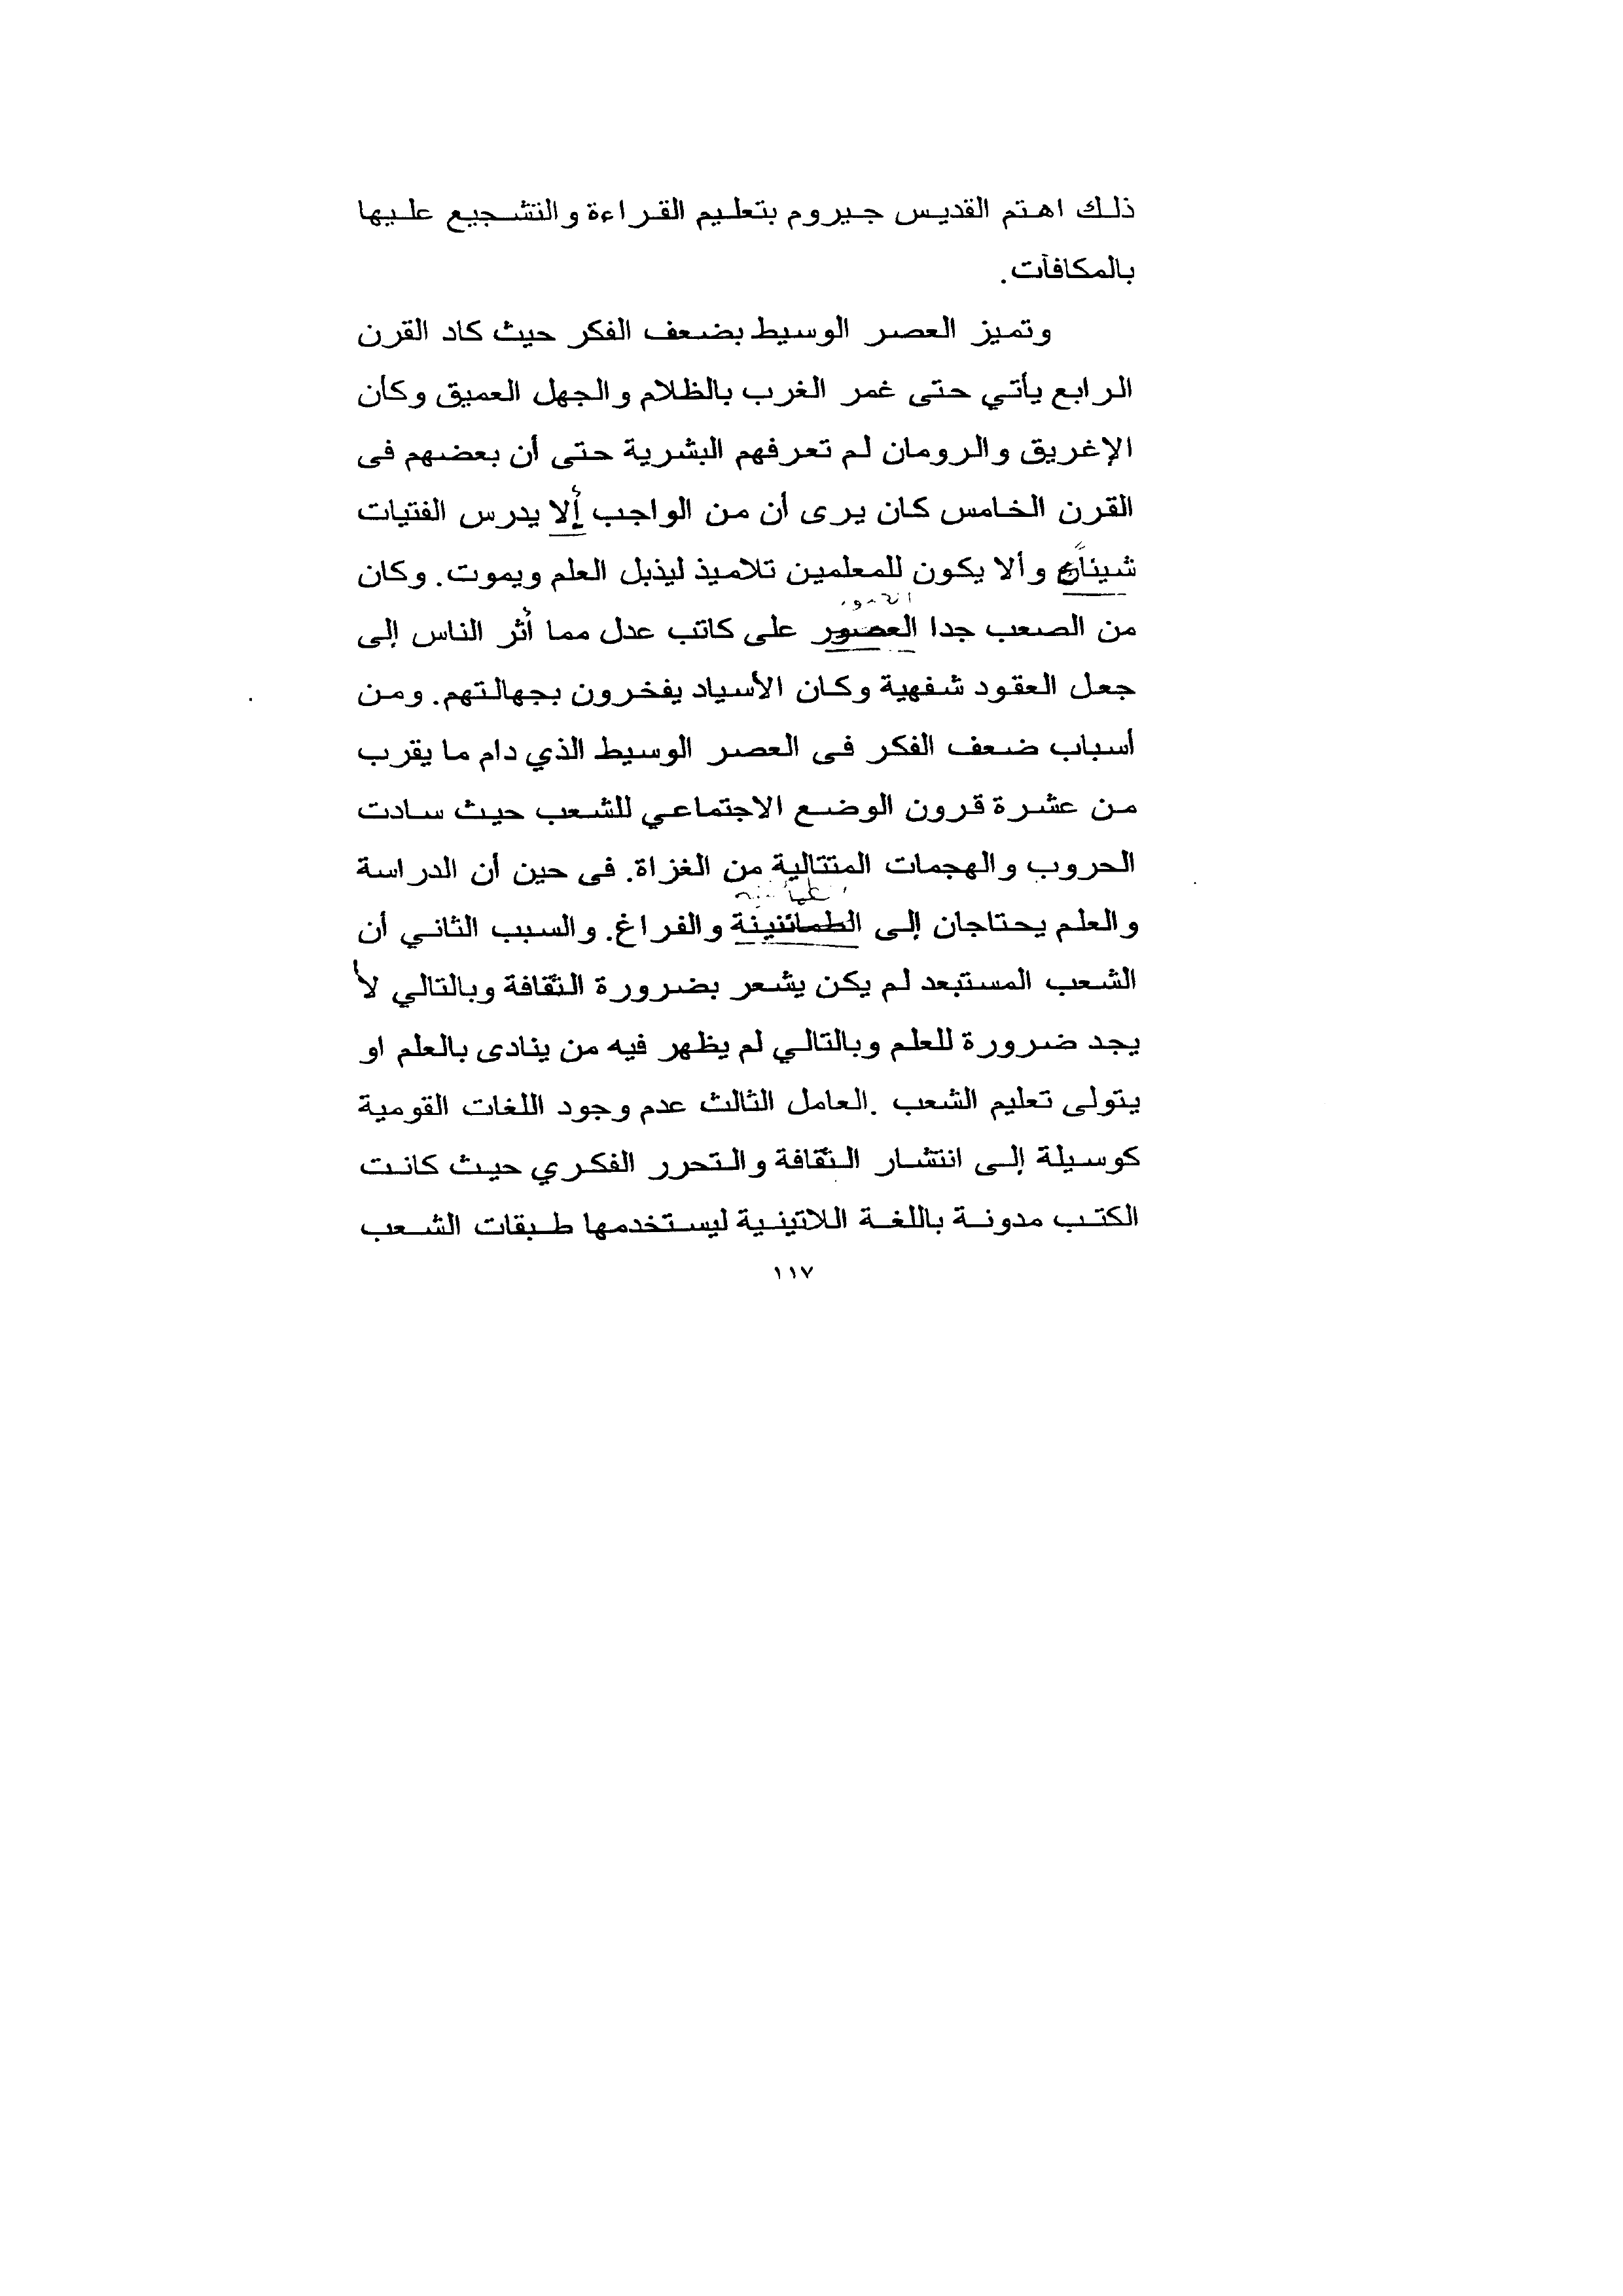 ذلك اهتم القديس جيروم بتعليم القراءة والتشجيع عليها
بالمكافآت.
وتميز العصر الوسيط بضعف الفكر حيث كاد القرن
الرابع يأتي حتى غمر الغرب بالظلام والجهل العميق وكأن
الإغريق والرومان لم تعرفهم البشرية حتى أن بعضهم فى
القرن الخامس كان يرى أن من الواجب ألا يدرس الفتيات
شيئاً وألا يكون للمعلمين تلاميذ ليذبل العلم ويموت. وكان
من الصعب جدا العصور على كاتب عدل مما أثر الناس إلى
جعل العقود شفهية وكان الأسياد يفخرون بجهالتهم. ومن
أسباب ضعف الفكر فى العصر الوسيط الذي دام ما يقرب
من عشرة قرون الوضع الاجتماعي للشعب حيث سادت
الحروب والهجمات المتتالية من الغزاة. فى حين أن الدراسة
طمأنينة
والعلم يحتاجان إلى الطمائنينة والفراغ. والسبب الثاني أن
الشعب المستبعد لم يكن يشعر بضرورة الثقافة وبالتالي لا
يجد ضرورة للعلم وبالتالي لم يظهر فيه من ينادى بالعلم او
يتولى تعليم الشعب .العامل الثالث عدم وجود اللغات القومية
كوسيلة إلى انتشار الثقافة والتحرر الفكري حيث كانت
الكتب مدونة باللغة اللاتينية ليستخدمها طبقات الشعب
١١٧